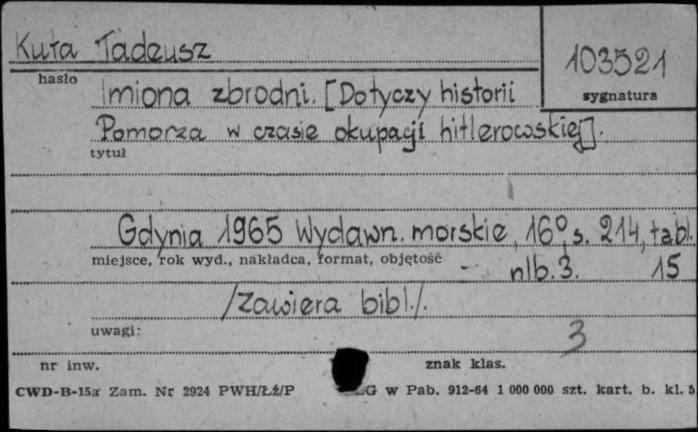 Kuta Tadeusz
103521
hasło
sygnatura
Imiona zbrodni. [Dotyczy historii
Pomorza w czasie okupacji hitlerowskiej].
tytuł
Gdynia 1965 Wydawn. morskie, 16°, s. 214, tabl.
miejsce, rok wyd., nakładca, format, objętość
nlb. 3. 15
/Zawiera bibl./.
uwagi:
3
nr inw.
znak klas.
CWD-B-15a Zam. Nr 2924 PWH/Łź/P G w Pab. 912-64 1 000 000 szt. kart. b. kl. 5